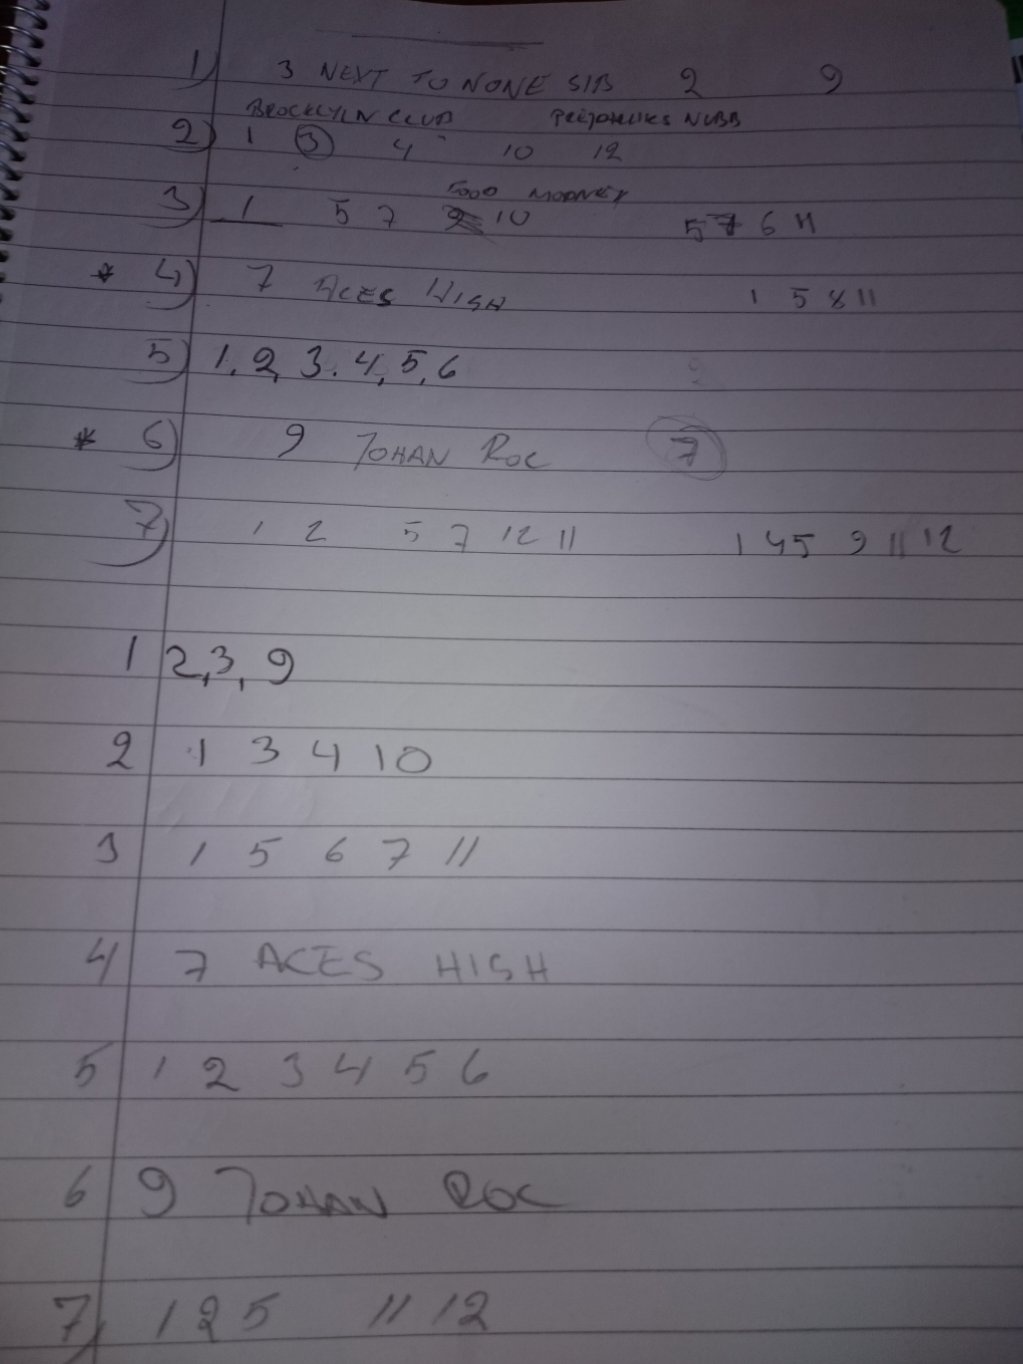 1) 3 NEXT TO NONE SIB 2 9
BROCKLYLN CLUB
2) 1 3 4 10 12
MOONEY
3) 1 5 7 10 5 7 6 11
* 4) 7 ACES HIGH 1 5 8 11
5) 1, 2, 3. 4, 5, 6
* 6) 9 JOHAN ROC 7
7) 1 2 5 7 12 11 1 4 5 9 11 12
1 2, 3, 9
2 1 3 4 10
3 1 5 6 7 11
4 7 ACES HIGH
5 1 2 3 4 5 6
6 9 JOHAN ROC
7) 1 2 5 11 12